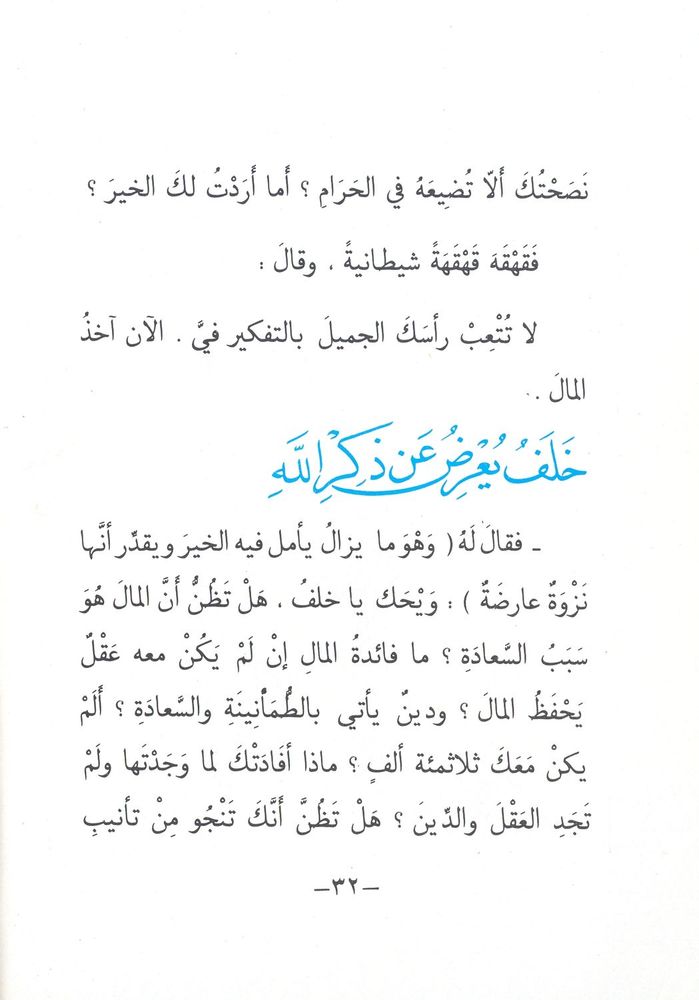 نَصَحْتُكَ أَلّا تُضِيعَهُ في الحَرَامِ ؟ أَما أَرَدْتُ لكَ الخيرَ ؟
فَقَهْقَهَ قَهْقَهَةً شيطانيةً ، وقالَ :
لا تُتْعِبْ رأسَكَ الجميلَ بالتفكير فيَّ . الآن آخذُ
المالَ ..
خَلَفُ يُعْرِضُ عَن ذَكِرِ اللَّهِ
ـ فقالَ لَهُ ( وَهْوَ ما يزالُ يأمل فيه الخيرَ ويقدِّر أنَّها
نَزْوَةٌ عارضَةٌ ) : وَيْحَك يا خلفُ ، هَلْ تَظُنُّ أَنَّ المالَ هُوَ
سَبَبُ السَّعادَةِ ؟ ما فائدةُ المالِ إنْ لَمْ يَكُنْ معه عَقْلٌ
يَحْفَظُ المالَ ؟ ودينٌ يأتي بالطُّمَأْنِينَةِ والسَّعادَةِ ؟ أَلَمْ
يكنْ مَعَكَ ثلاثمئة ألفٍ ؟ ماذا أفَادَتْكَ لما وَجَدْتَها ولَمْ
تَجَدِ العَقْلَ والدِّينَ ؟ هَلْ تَظُنَّ أَنَّكَ تَنْجُو مِنْ تأنيبِ
ـ٣٢ـ